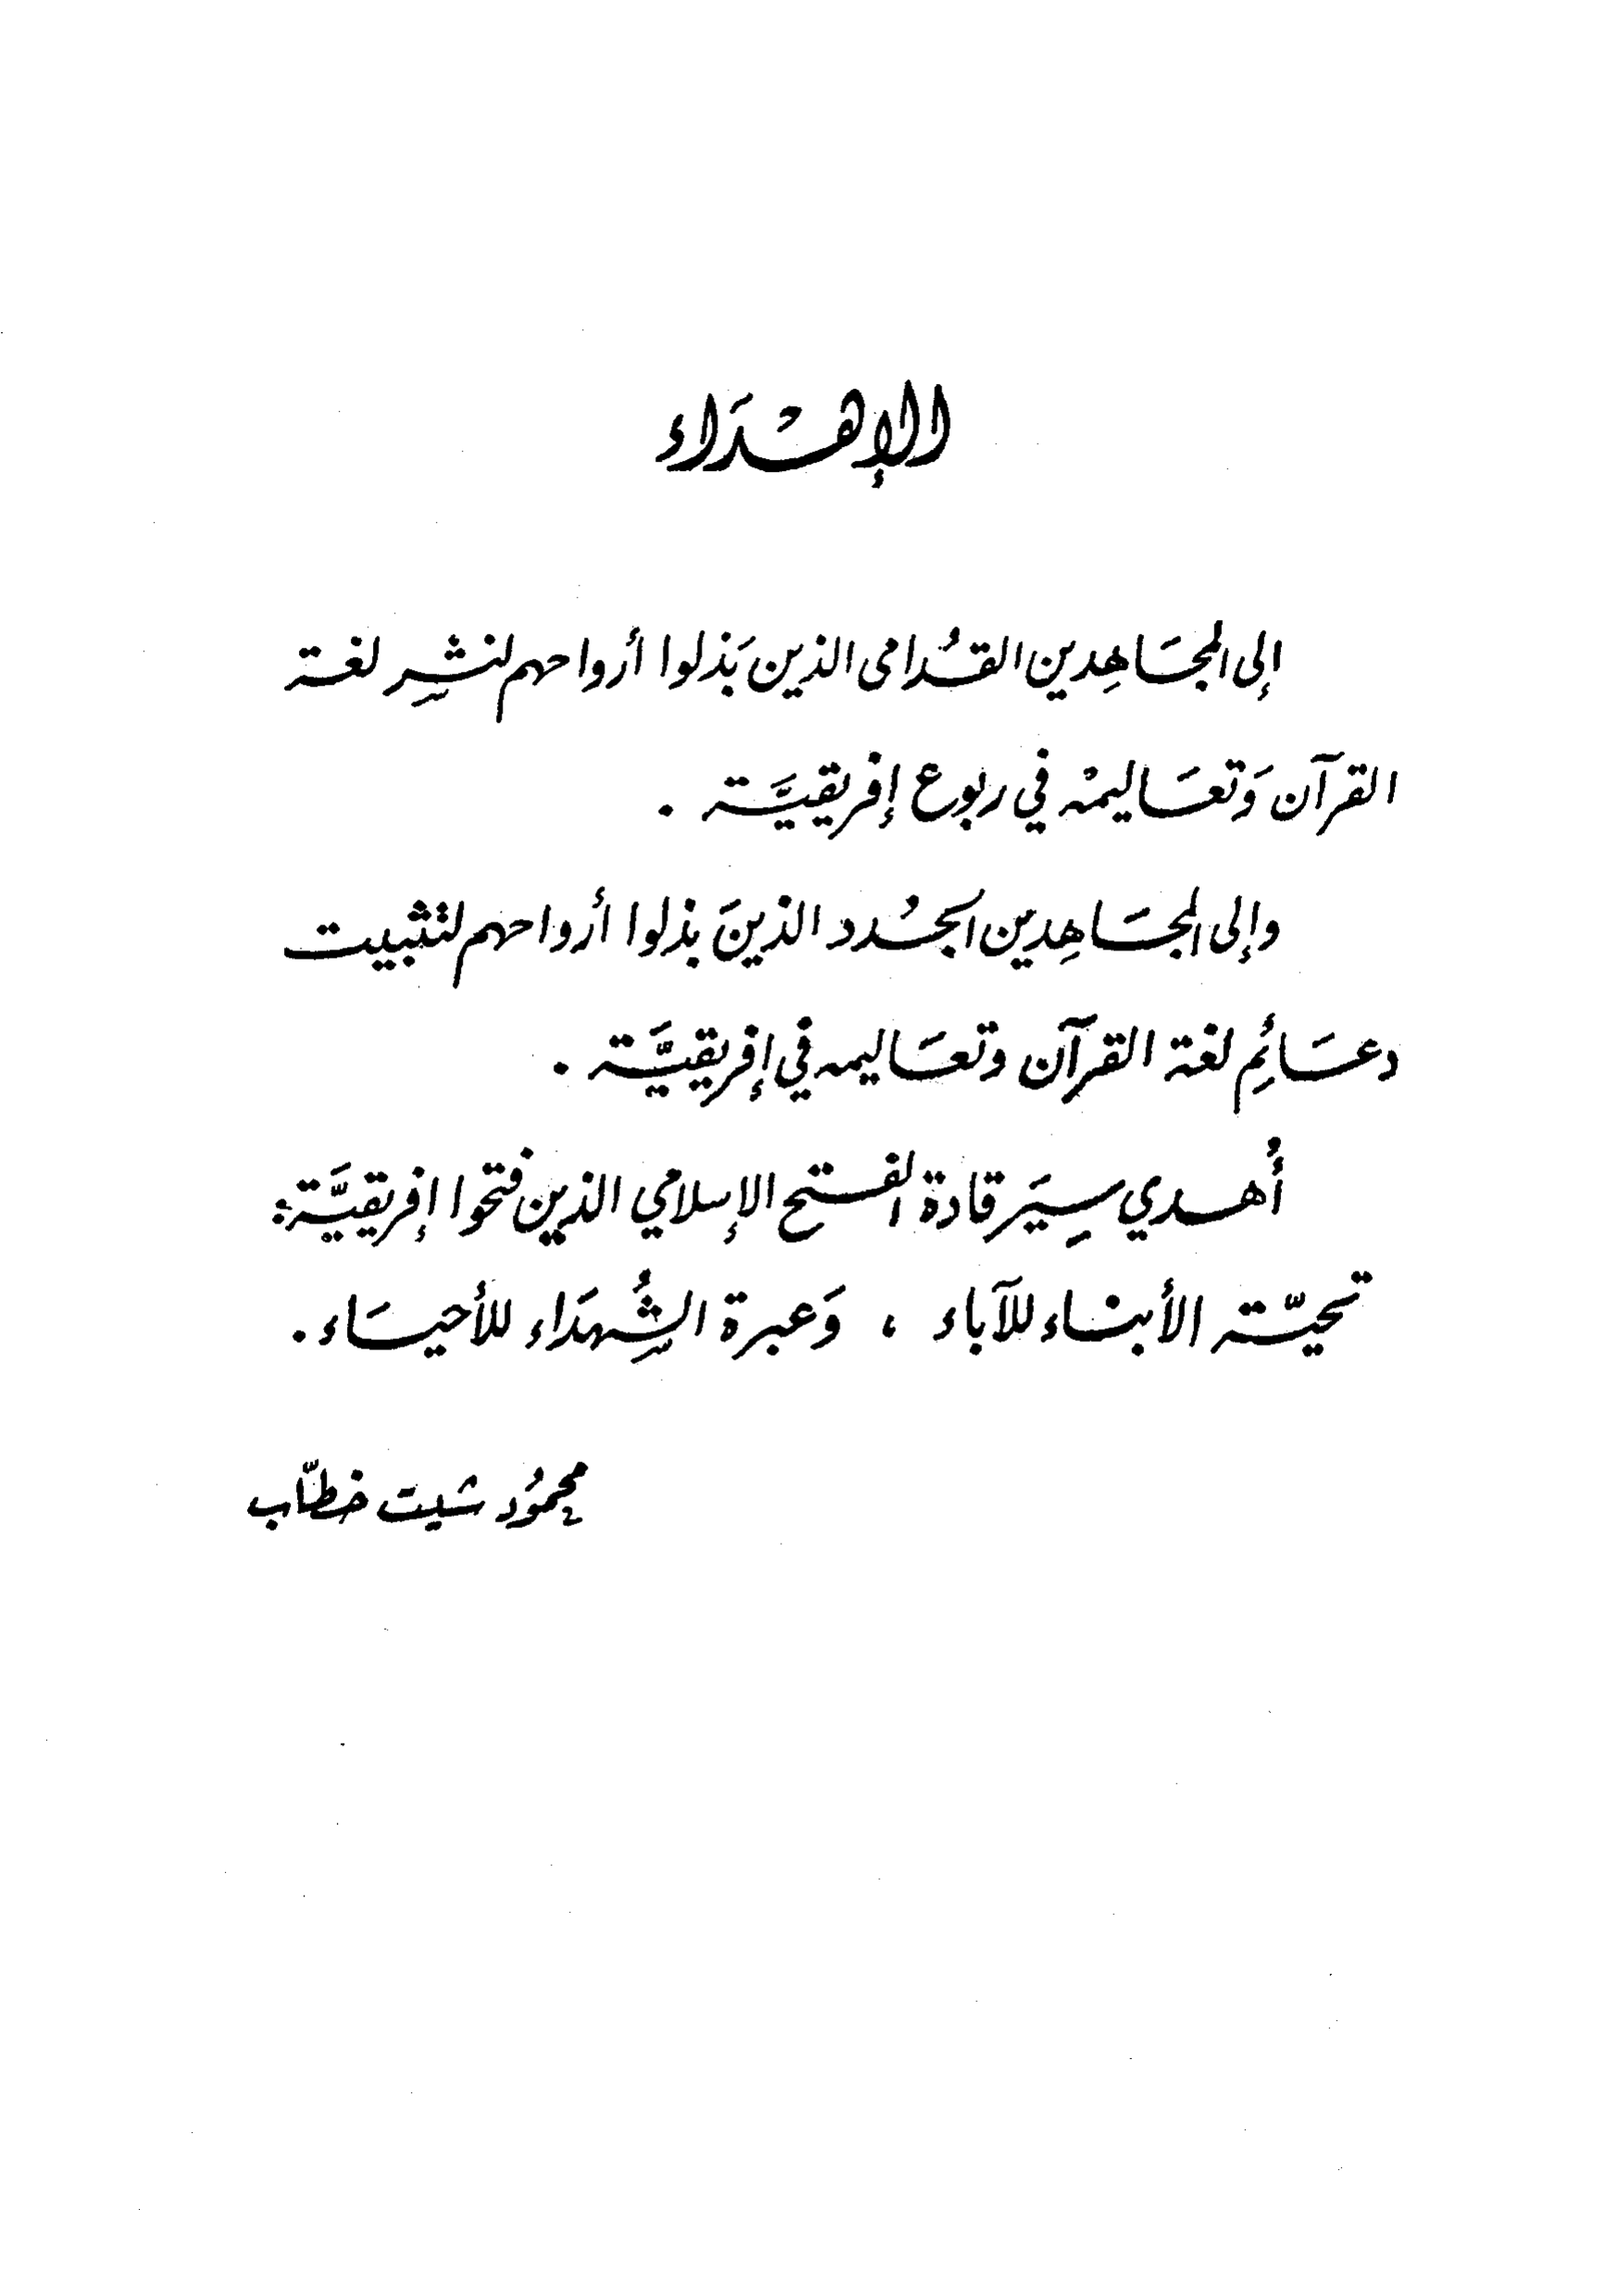 الإهْدَاء
إلى المجَاهِدين القدُامى الذين بَذلوا أرواحهم لنشِر لغة
القرآن وَتعَاليمْه في ربوع إفريقيَّة .
وإلى المجَاهِدين الجُدد الذينَ بذلوا أرواحهم لتثبيت
دعَائِم لغة القرآن وتعَاليمه في إفريقيَّة .
أُهدي سِيَر قادة الفتح الإسلامي الذين فتحوا إفريقيَّة :
تحيّة الأبناء للآباء ، وَعبرة الشُهدَاء للأحيَاء .
محمُود شيت خطّاب